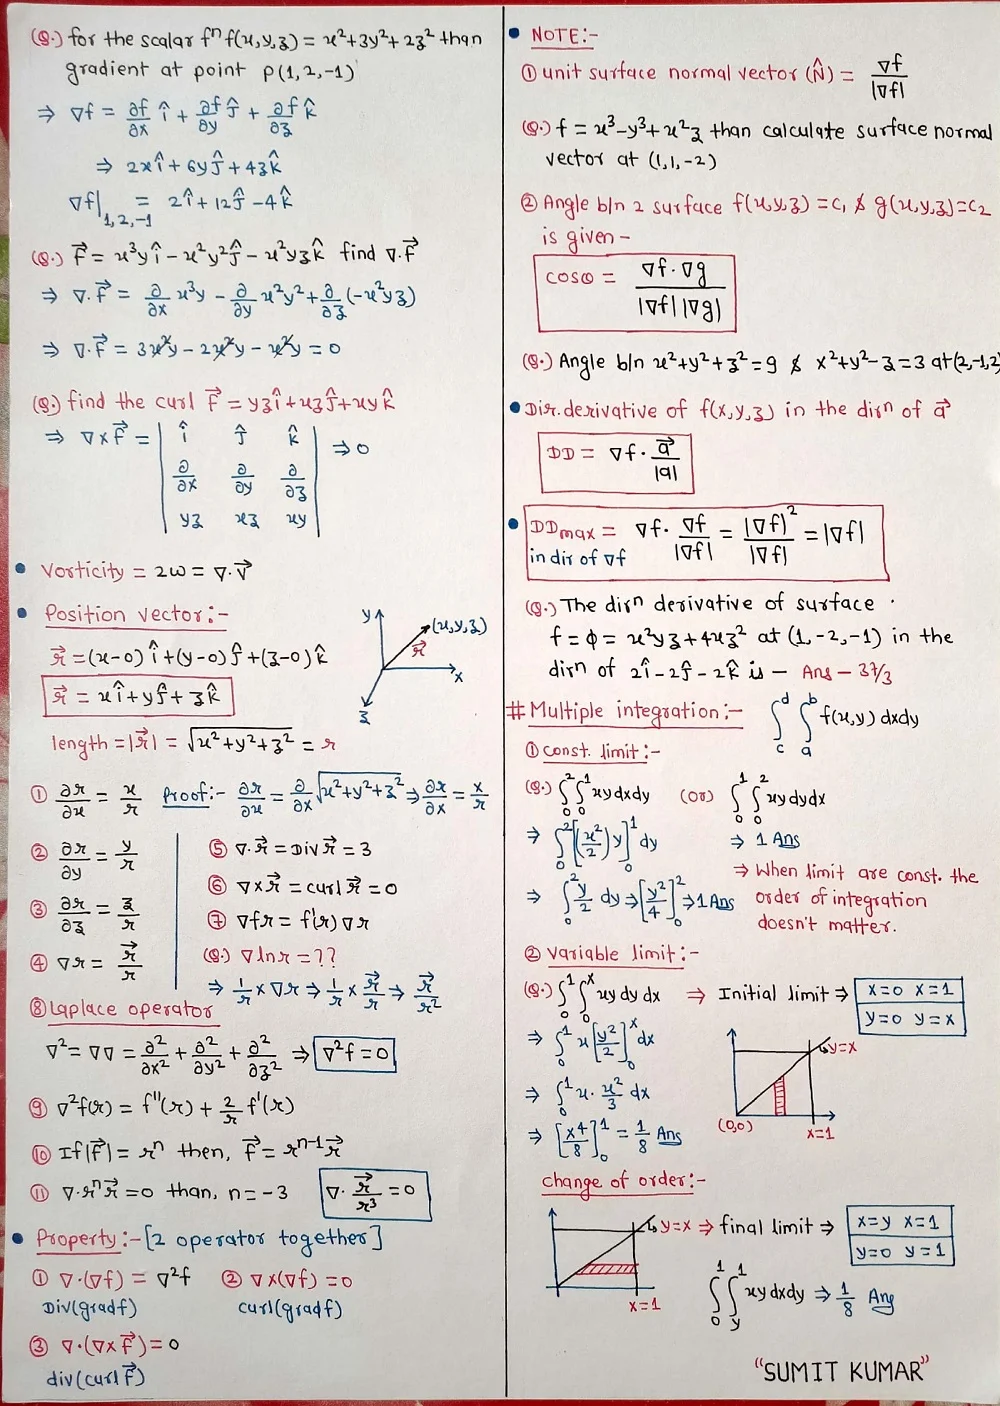 (Q.) for the scalar fⁿ f(x,y,z) = x²+3y²+2z² than
gradient at point P(1,2,-1)
⇒ ∇f = ∂f/∂x î + ∂f/∂y ĵ + ∂f/∂z k̂
⇒ 2xî + 6yĵ + 4zk̂
∇f|₁,₂,₋₁ = 2î + 12ĵ - 4k̂
(Q.) F⃗ = x³yî - x²y²ĵ - x²yzk̂ find ∇.F⃗
⇒ ∇.F⃗ = ∂/∂x x³y - ∂/∂y x²y² + ∂/∂z (-x²yz)
⇒ ∇.F⃗ = 3x²y - 2x²y - x²y = 0
(Q.) find the curl F⃗ = yzî + xzĵ + xyk̂
⇒ ∇×F⃗ = | î ĵ k̂ | ⇒ 0
∂/∂x ∂/∂y ∂/∂z
yz xz xy
• Vorticity = 2ω = ∇.V⃗
• Position vector:-
r⃗ = (x-0)î + (y-0)ĵ + (z-0)k̂
r⃗ = xî + yĵ + zk̂
y (x,y,z) r⃗ x z
length = |r⃗| = √x²+y²+z² = r
① ∂r/∂x = x/r Proof:- ∂r/∂x = ∂/∂x √x²+y²+z² ⇒ ∂r/∂x = x/r
② ∂r/∂y = y/r
③ ∂r/∂z = z/r
④ ∇r = r⃗/r
⑤ ∇.r⃗ = Div r⃗ = 3
⑥ ∇×r⃗ = curl r⃗ = 0
⑦ ∇fr = f'(r)∇r
(Q.) ∇lnr = ??
⇒ 1/r × ∇r ⇒ 1/r × r⃗/r ⇒ r⃗/r²
⑧ Laplace operator
∇² = ∇∇ = ∂²/∂x² + ∂²/∂y² + ∂²/∂z² ⇒ ∇²f = 0
⑨ ∇²f(r) = f''(r) + 2/r f'(r)
⑩ If |F⃗| = rⁿ then, F⃗ = rⁿ⁻¹r⃗
⑪ ∇.rⁿr⃗ = 0 than, n = -3 ∇. r⃗/r³ = 0
• Property:- [2 operator together]
① ∇.(∇f) = ∇²f ② ∇×(∇f) = 0
Div(gradf) curl(gradf)
③ ∇.(∇×F⃗) = 0
div(curl F⃗)
• NOTE:-
① unit surface normal vector (N̂) = ∇f/|∇f|
(Q.) f = x³-y³+x²z than calculate surface normal
vector at (1,1,-2)
② Angle b/n 2 surface f(x,y,z) = c₁ & g(x,y,z) = c₂
is given -
cosɷ = ∇f.∇g/|∇f||∇g|
(Q.) Angle b/n x²+y²+z² = 9 & x²+y²-z = 3 at (2,-1,2)
• Dir. derivative of f(x,y,z) in the dirⁿ of a⃗
DD = ∇f. a⃗/|a|
• DDmax = ∇f. ∇f/|∇f| = |∇f|²/|∇f| = |∇f|
in dir of ∇f
(Q.) The dirⁿ derivative of surface
f = φ = x²yz + 4xz² at (1,-2,-1) in the
dirⁿ of 2î - 2ĵ - 2k̂ is - Ans - 37/3
# Multiple integration:- ∫_c^d ∫_a^b f(x,y) dxdy
① const. limit:-
(Q.) ∫₀² ∫₀¹ xy dxdy (Or) ∫₀¹ ∫₀² xy dydx
⇒ ∫₀² [(x²/2) y]₀¹ dy ⇒ 1 Ans
⇒ ∫₀² y/2 dy ⇒ [y²/4]₀² ⇒ 1 Ans
⇒ When limit are const. the
order of integration
doesn't matter.
② variable limit:-
(Q.) ∫₀¹ ∫₀ˣ xy dy dx ⇒ Initial limit ⇒ x=0 x=1
y=0 y=x
⇒ ∫₀¹ x [y²/2]₀ˣ dx
y=x
⇒ ∫₀¹ x. x²/3 dx
(0,0) x=1
⇒ [x4/8]₀¹ = 1/8 Ans
change of order:-
y=x ⇒ final limit ⇒ x=y x=1
y=0 y=1
x=1
∫₀¹ ∫_y^1 xy dxdy ⇒ 1/8 Ans
"SUMIT KUMAR"